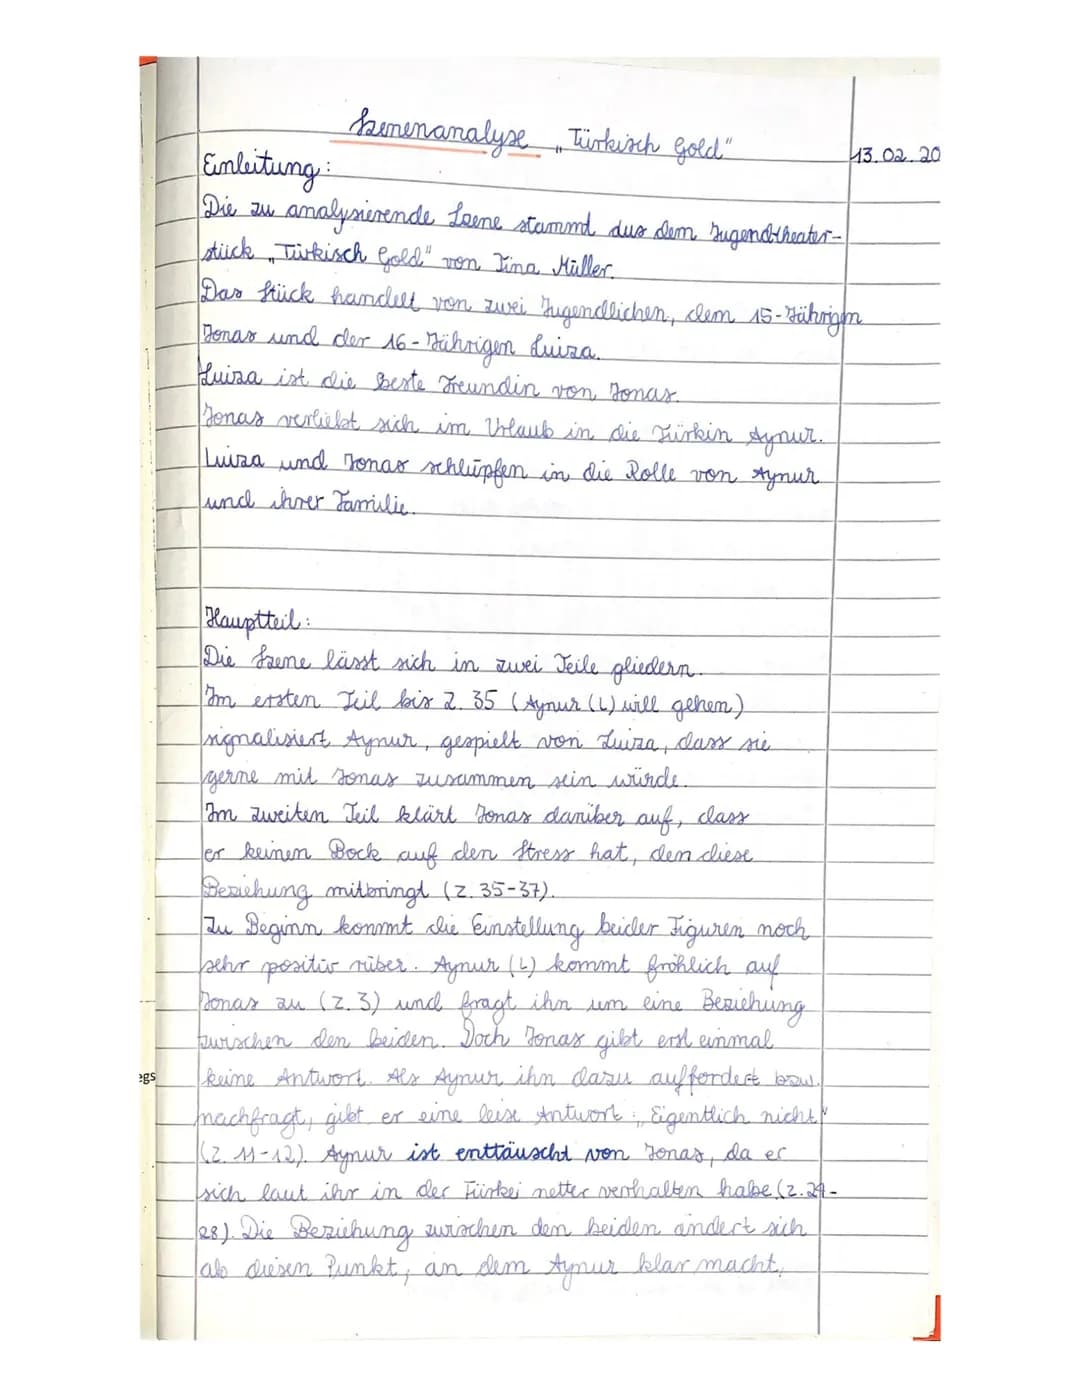 Szenenanalyse „Türkisch Gold"
13.02.20
Einleitung:
Die zu analysierende Szene stammt aus dem Jugendtheater-
stück „Türkisch Gold" von Tina Müller.
Das Stück handelt von zwei Jugendlichen, dem 15-Jährigen
Jonas und der 16-Jährigen Luiza.
Luiza ist die beste Freundin von Jonas.
Jonas verliebt sich im Urlaub in die Türkin Aynur.
Luiza und Jonas schlüpfen in die Rolle von Aynur
und ihrer Familie.
Hauptteil:
Die Szene lässt sich in zwei Teile gliedern.
Im ersten Teil bis Z. 35 (Aynur (L) will gehen)
signalisiert Aynur, gespielt von Luiza, dass sie
gerne mit Jonas zusammen sein würde.
Im zweiten Teil klärt Jonas darüber auf, dass
er keinen Bock auf den Stress hat, den diese
Beziehung mitbringt (Z. 35-37).
Zu Beginn kommt die Einstellung beider Figuren noch
sehr positiv rüber. Aynur (L) kommt fröhlich auf
Jonas zu (Z. 3) und fragt ihn um eine Beziehung
zwischen den beiden. Doch Jonas gibt erst einmal
keine Antwort. Als Aynur ihn dazu auffordert bzw.
egs
nachfragt, gibt er eine leise Antwort: „Eigentlich nicht"
(Z. 11-12). Aynur ist enttäuscht von Jonas, da er
sich laut ihr in der Türkei netter verhalten habe (Z. 27-
28). Die Beziehung zwischen den beiden ändert sich
ab diesen Punkt, an dem Aynur klar macht,